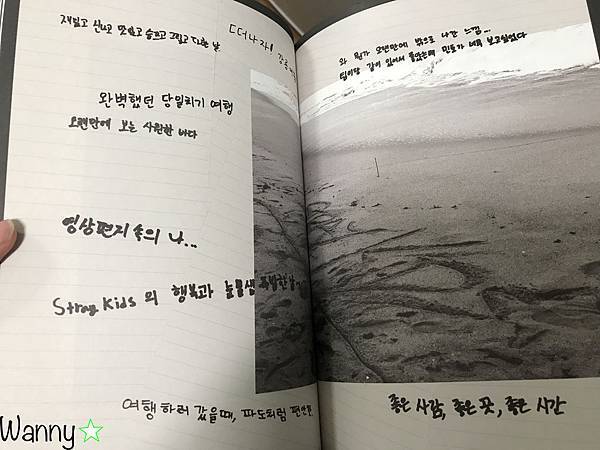 재밌고 신나고 맛있고 슬프고 그립고 다한 날
떠나자! 강릉
완벽했던 당일치기 여행
오랜만에 보는 시원한 바다
영상편지 속의 나...
Stray Kids 의 행복과 눈물샘 폭발한 날
여행하러 갔을때, 파도처럼 편안한
와 뭔가 오랜만에 밖으로 나간 느낌...
팀이랑 같이 있어서 좋았는데 민호가 너무 보고싶었다
좋은 사람, 좋은 곳, 좋은 시간
Wanny